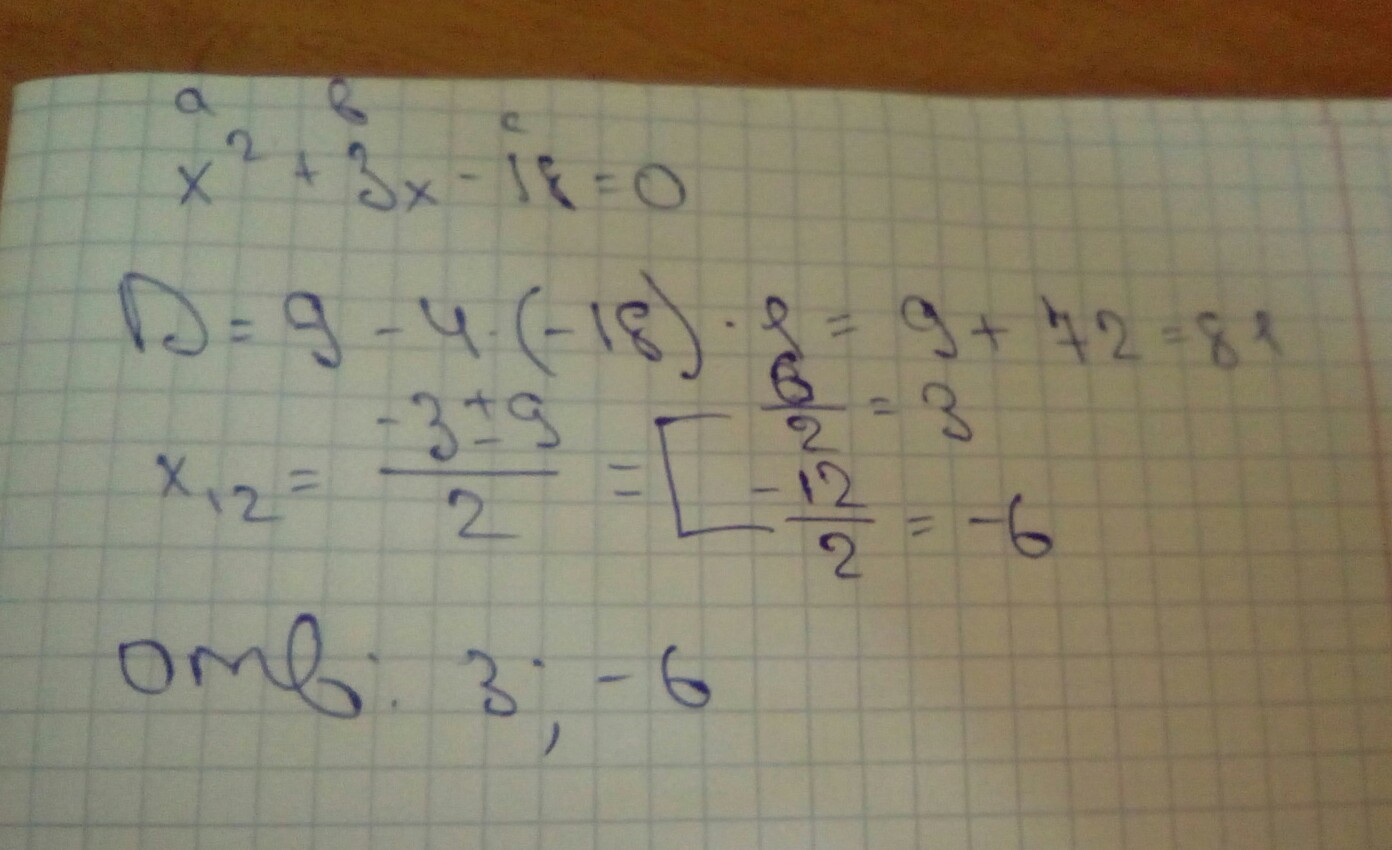 a в c
x² + 3x - 18 = 0
D = 9 - 4 · (-18) · 1 = 9 + 72 = 81
x₁₂ = (-3 ± 9)/2 = [ 6/2 = 3
-12/2 = -6
отв: 3; -6